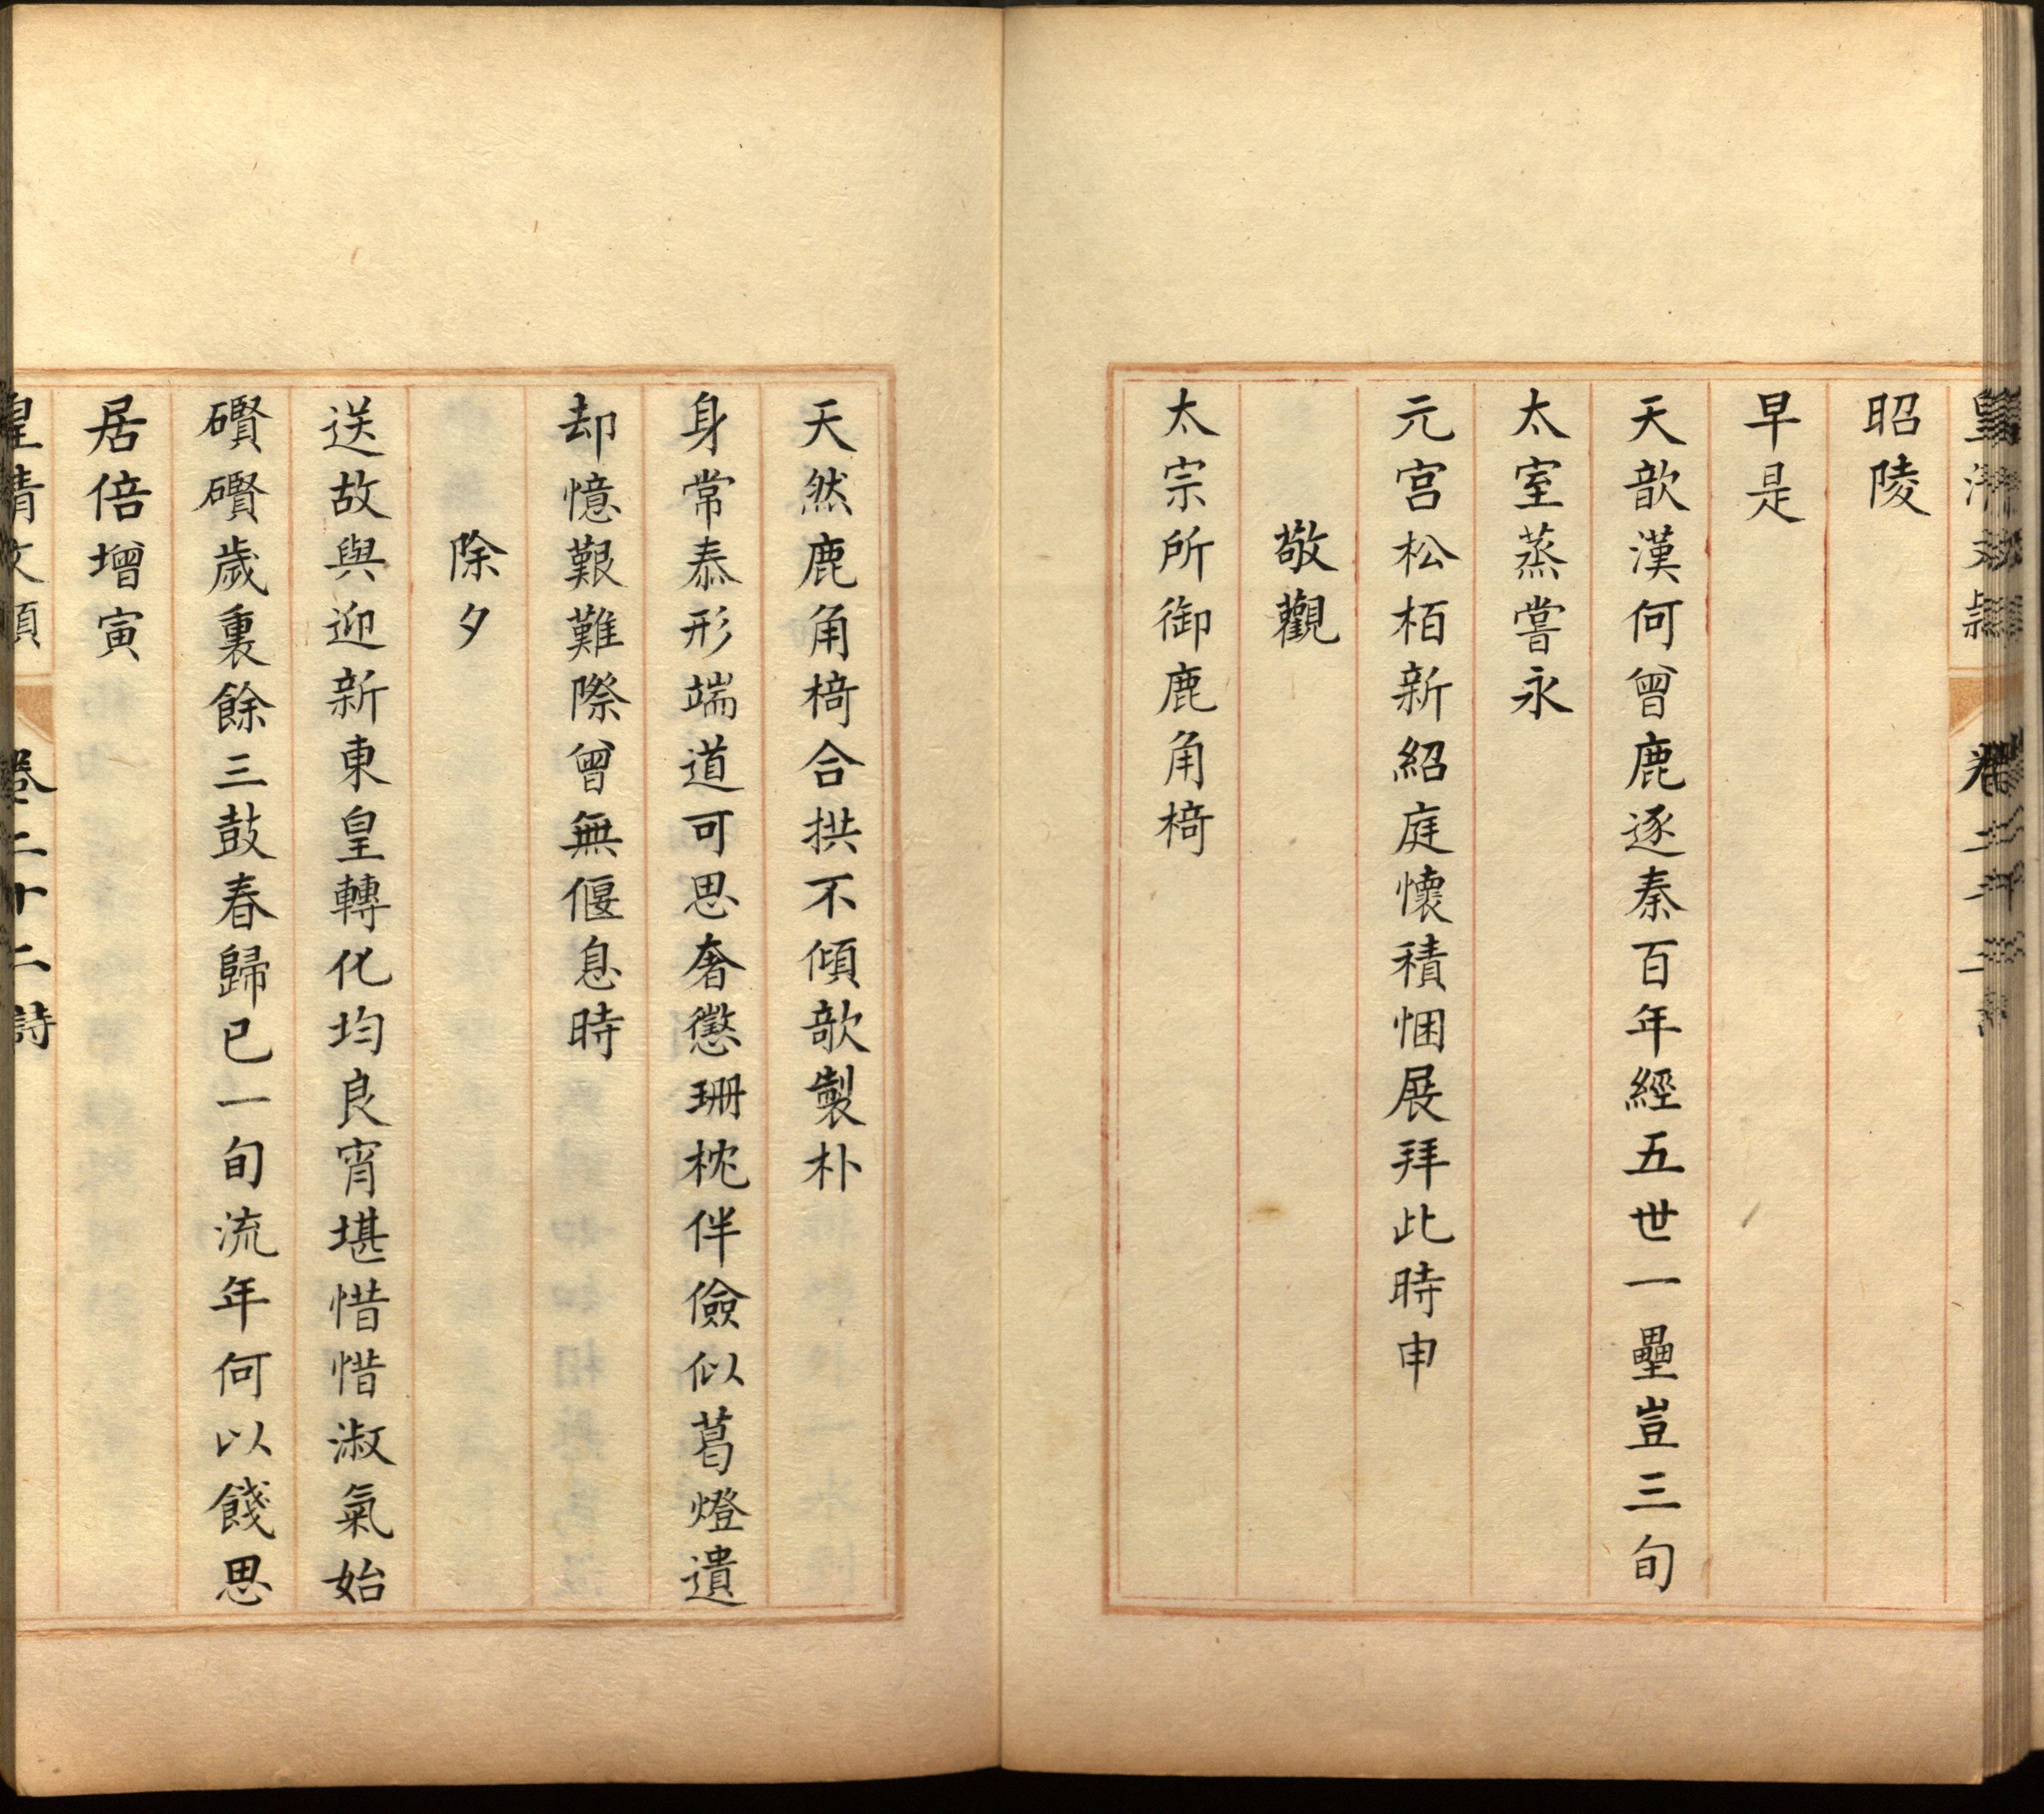 昭陵
早是
天歆漢何曾鹿逐秦百年經五世一壘豈三旬
太室蒸嘗永
元宫松栢新紹庭懷積悃展拜此時申
敬觀
太宗所御鹿角椅
天然鹿角椅合拱不傾欹製朴
身常恭形端道可思奢懲珊枕伴儉似葛燈遺
却憶艱難際曾無偃息時
除夕
送故與迎新東皇轉化均良宵堪惜惜淑氣始
礥礥歲裏餘三鼓春歸已一旬流年何以餞思
居倍增寅
皇清文穎 卷二十二詩